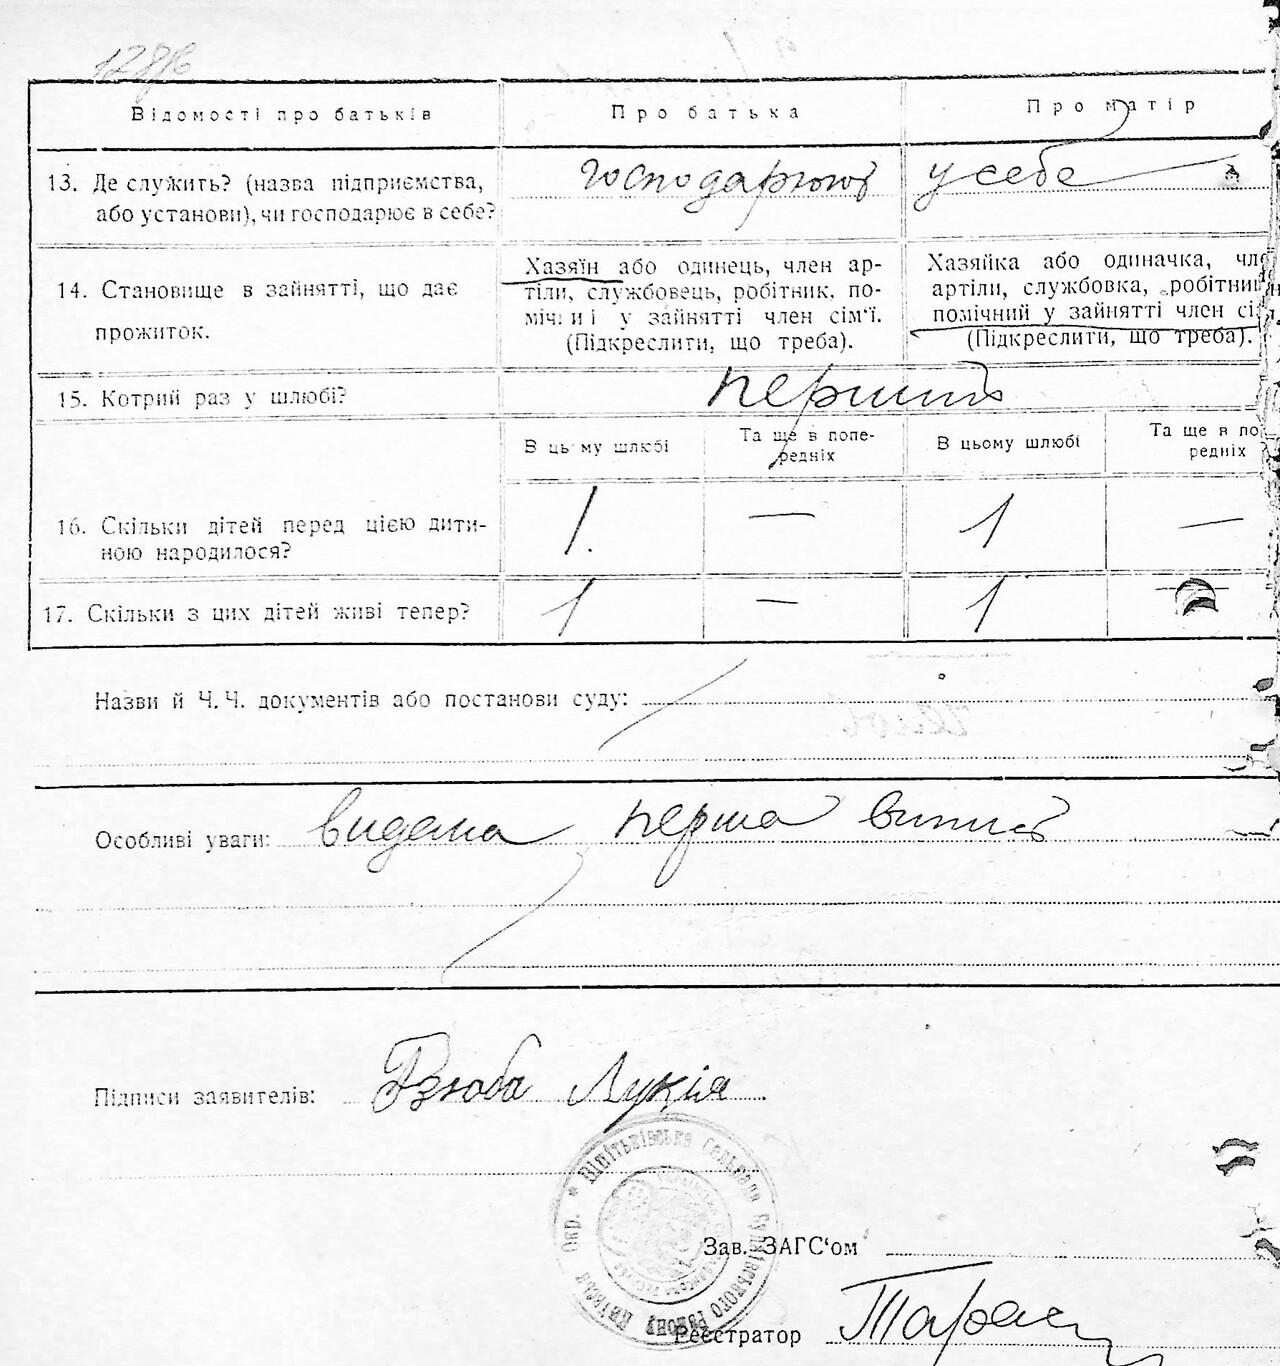 Відомості про батьків
Про батька
Про матір
13. Де служить? (назва підприємства,
або установи), чи господарює в себе?
господарюют
у себе
14. Становище в зайнятті, що дає
прожиток.
Хазяїн або одинець, член ар-
тіли, службовець, робітник, по-
мічний у зайнятті член сім'ї.
(Підкреслити, що треба).
Хазяйка або одиначка, чле
артіли, службовка, робітни
помічний у зайнятті член сі
(Підкреслити, що треба).
15. Котрий раз у шлюбі?
перший
В цьому шлюбі
Та ще в попе-
редніх
В цьому шлюбі
Та ще в по
редніх
16. Скільки дітей перед цією дити-
ною народилося?
1. — 1 —
17. Скільки з цих дітей живі тепер?
1 — 1 —
Назви й Ч.Ч. документів або постанови суду:
Особливі уваги: видана перша випись
Підписи заявителів: Дзюба Лукія
Сельрада
району Київськ Окр. *
Зав. ЗАГС'ом
Реєстратор Тарас